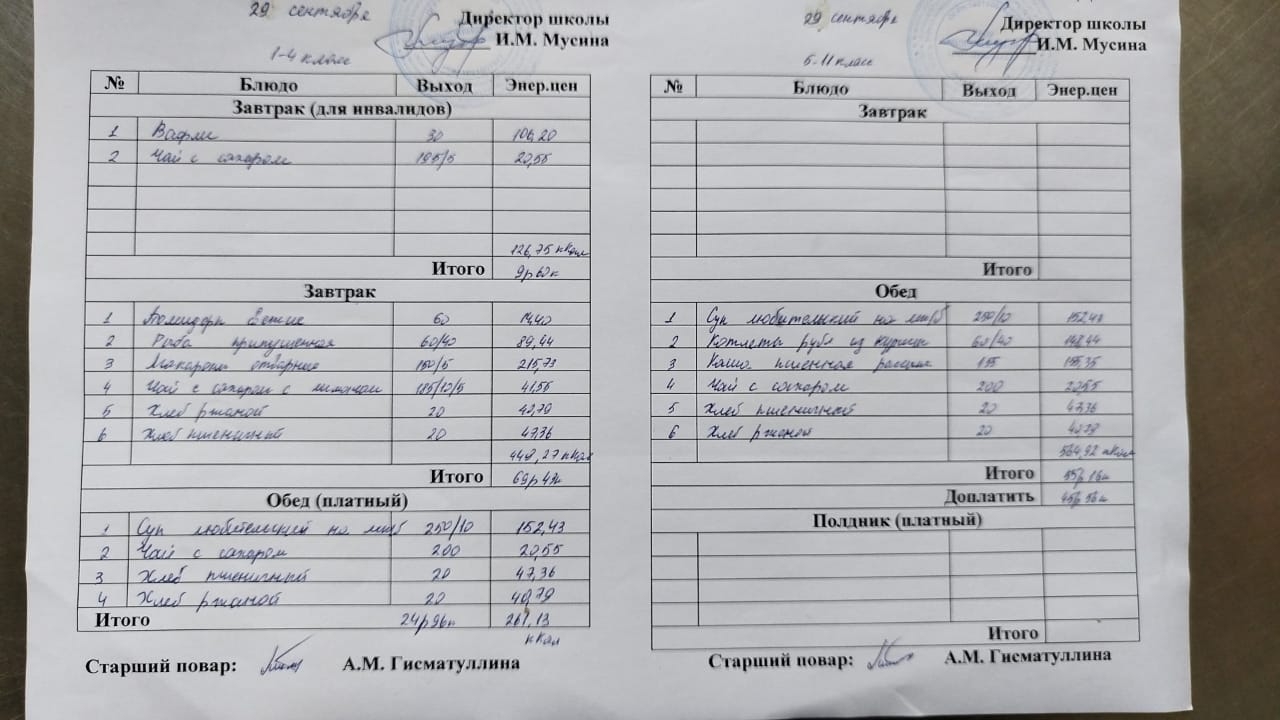 29 сентября
Директор школы
И.М. Мусина
1-4 класс
№ Блюдо Выход Энер.цен
Завтрак (для инвалидов)
1 Вафли 30 106,20
2 Чай с сахаром 195/5 20,55
126,75 кКал
Итого 9р 60к
Завтрак
1 Помидоры свежие 60 14,40
2 Рыба припущенная 60/40 89,44
3 Макароны отварные 150/5 215,73
4 Чай с сахаром с лимоном 185/10/5 41,55
5 Хлеб ржаной 20 40,79
6 Хлеб пшеничный 20 47,36
449,27 кКал
Итого 69р 47к
Обед (платный)
1 Суп любительский на м/к/б 250/10 152,43
2 Чай с сахаром 200 20,55
3 Хлеб пшеничный 20 47,36
4 Хлеб ржаной 20 40,79
Итого 24р 96к 261,13
кКал
Старший повар: А.М. Гисматуллина
29 сентября
Директор школы
И.М. Мусина
5-11 класс
№ Блюдо Выход Энер.цен
Завтрак
Итого
Обед
1 Суп любительский на м/к/б 250/10 152,43
2 Котлеты рубл из курицы 60/40 148,44
3 Каша пшенная рассып 155 155,35
4 Чай с сахаром 200 20,55
5 Хлеб пшеничный 20 47,36
6 Хлеб ржаной 20 40,79
564,92 кКал
Итого 55р 16к
Доплатить 45р 56к
Полдник (платный)
Итого
Старший повар: А.М. Гисматуллина